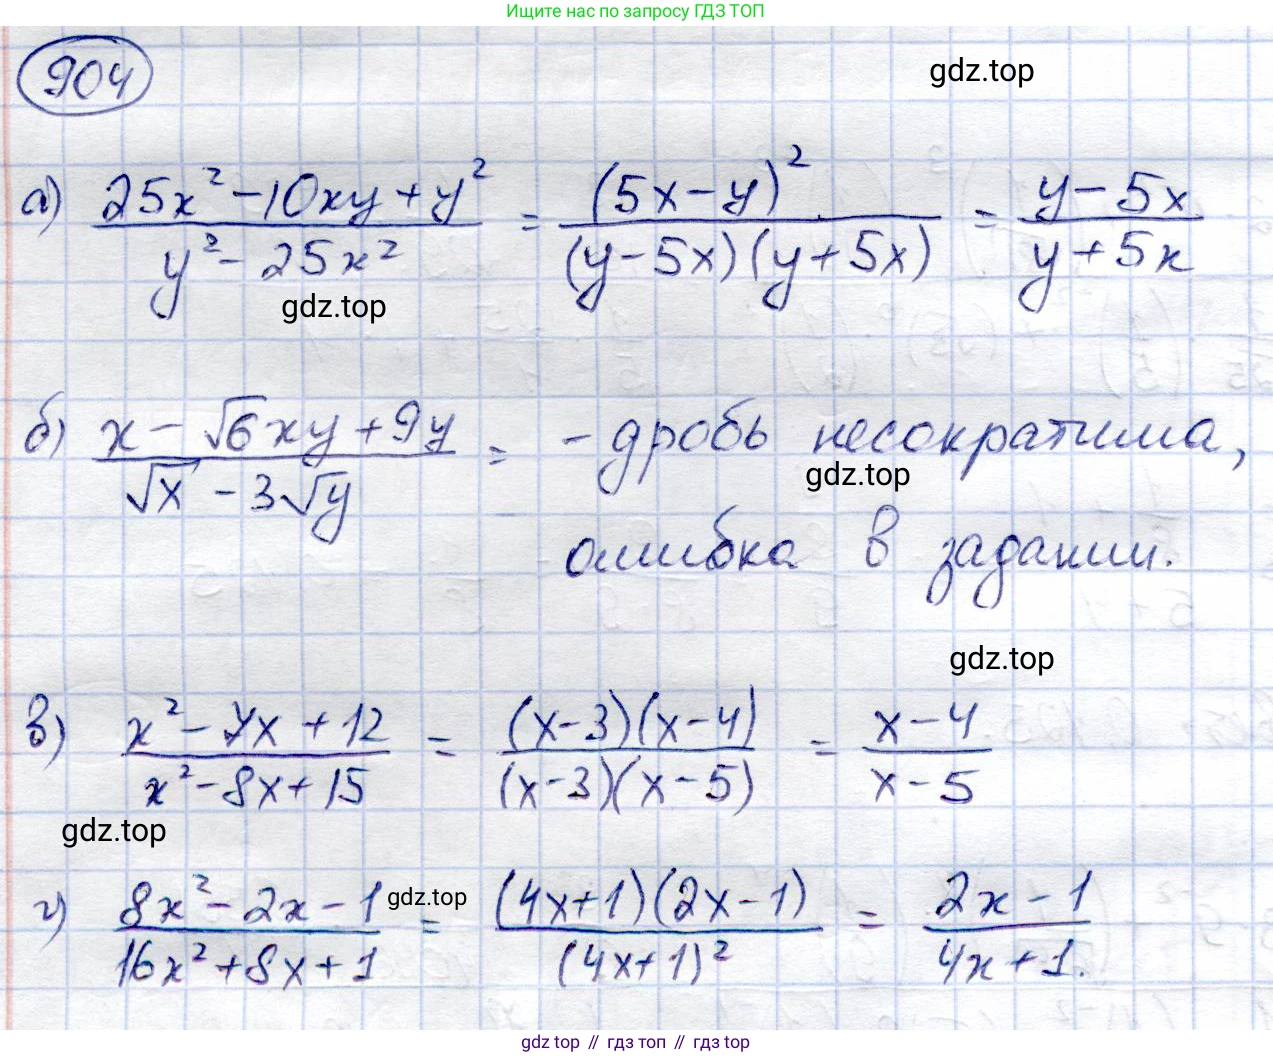 Ищите нас по запросу ГДЗ ТОП
904
gdz.top
а) (25x² - 10xy + y²)/(y² - 25x²) = (5x - y)²/((y - 5x)(y + 5x)) = (y - 5x)/(y + 5x)
gdz.top
б) (x - √6xy + 9y)/(√x - 3√y) = - дробь несократима,
gdz.top
ошибка в задании.
gdz.top
в) (x² - 7x + 12)/(x² - 8x + 15) = ((x - 3)(x - 4))/((x - 3)(x - 5)) = (x - 4)/(x - 5)
gdz.top
г) (8x² - 2x - 1)/(16x² + 8x + 1) = ((4x + 1)(2x - 1))/(4x + 1)² = (2x - 1)/(4x + 1).
gdz.top
gdz top // гдз топ // гдз top